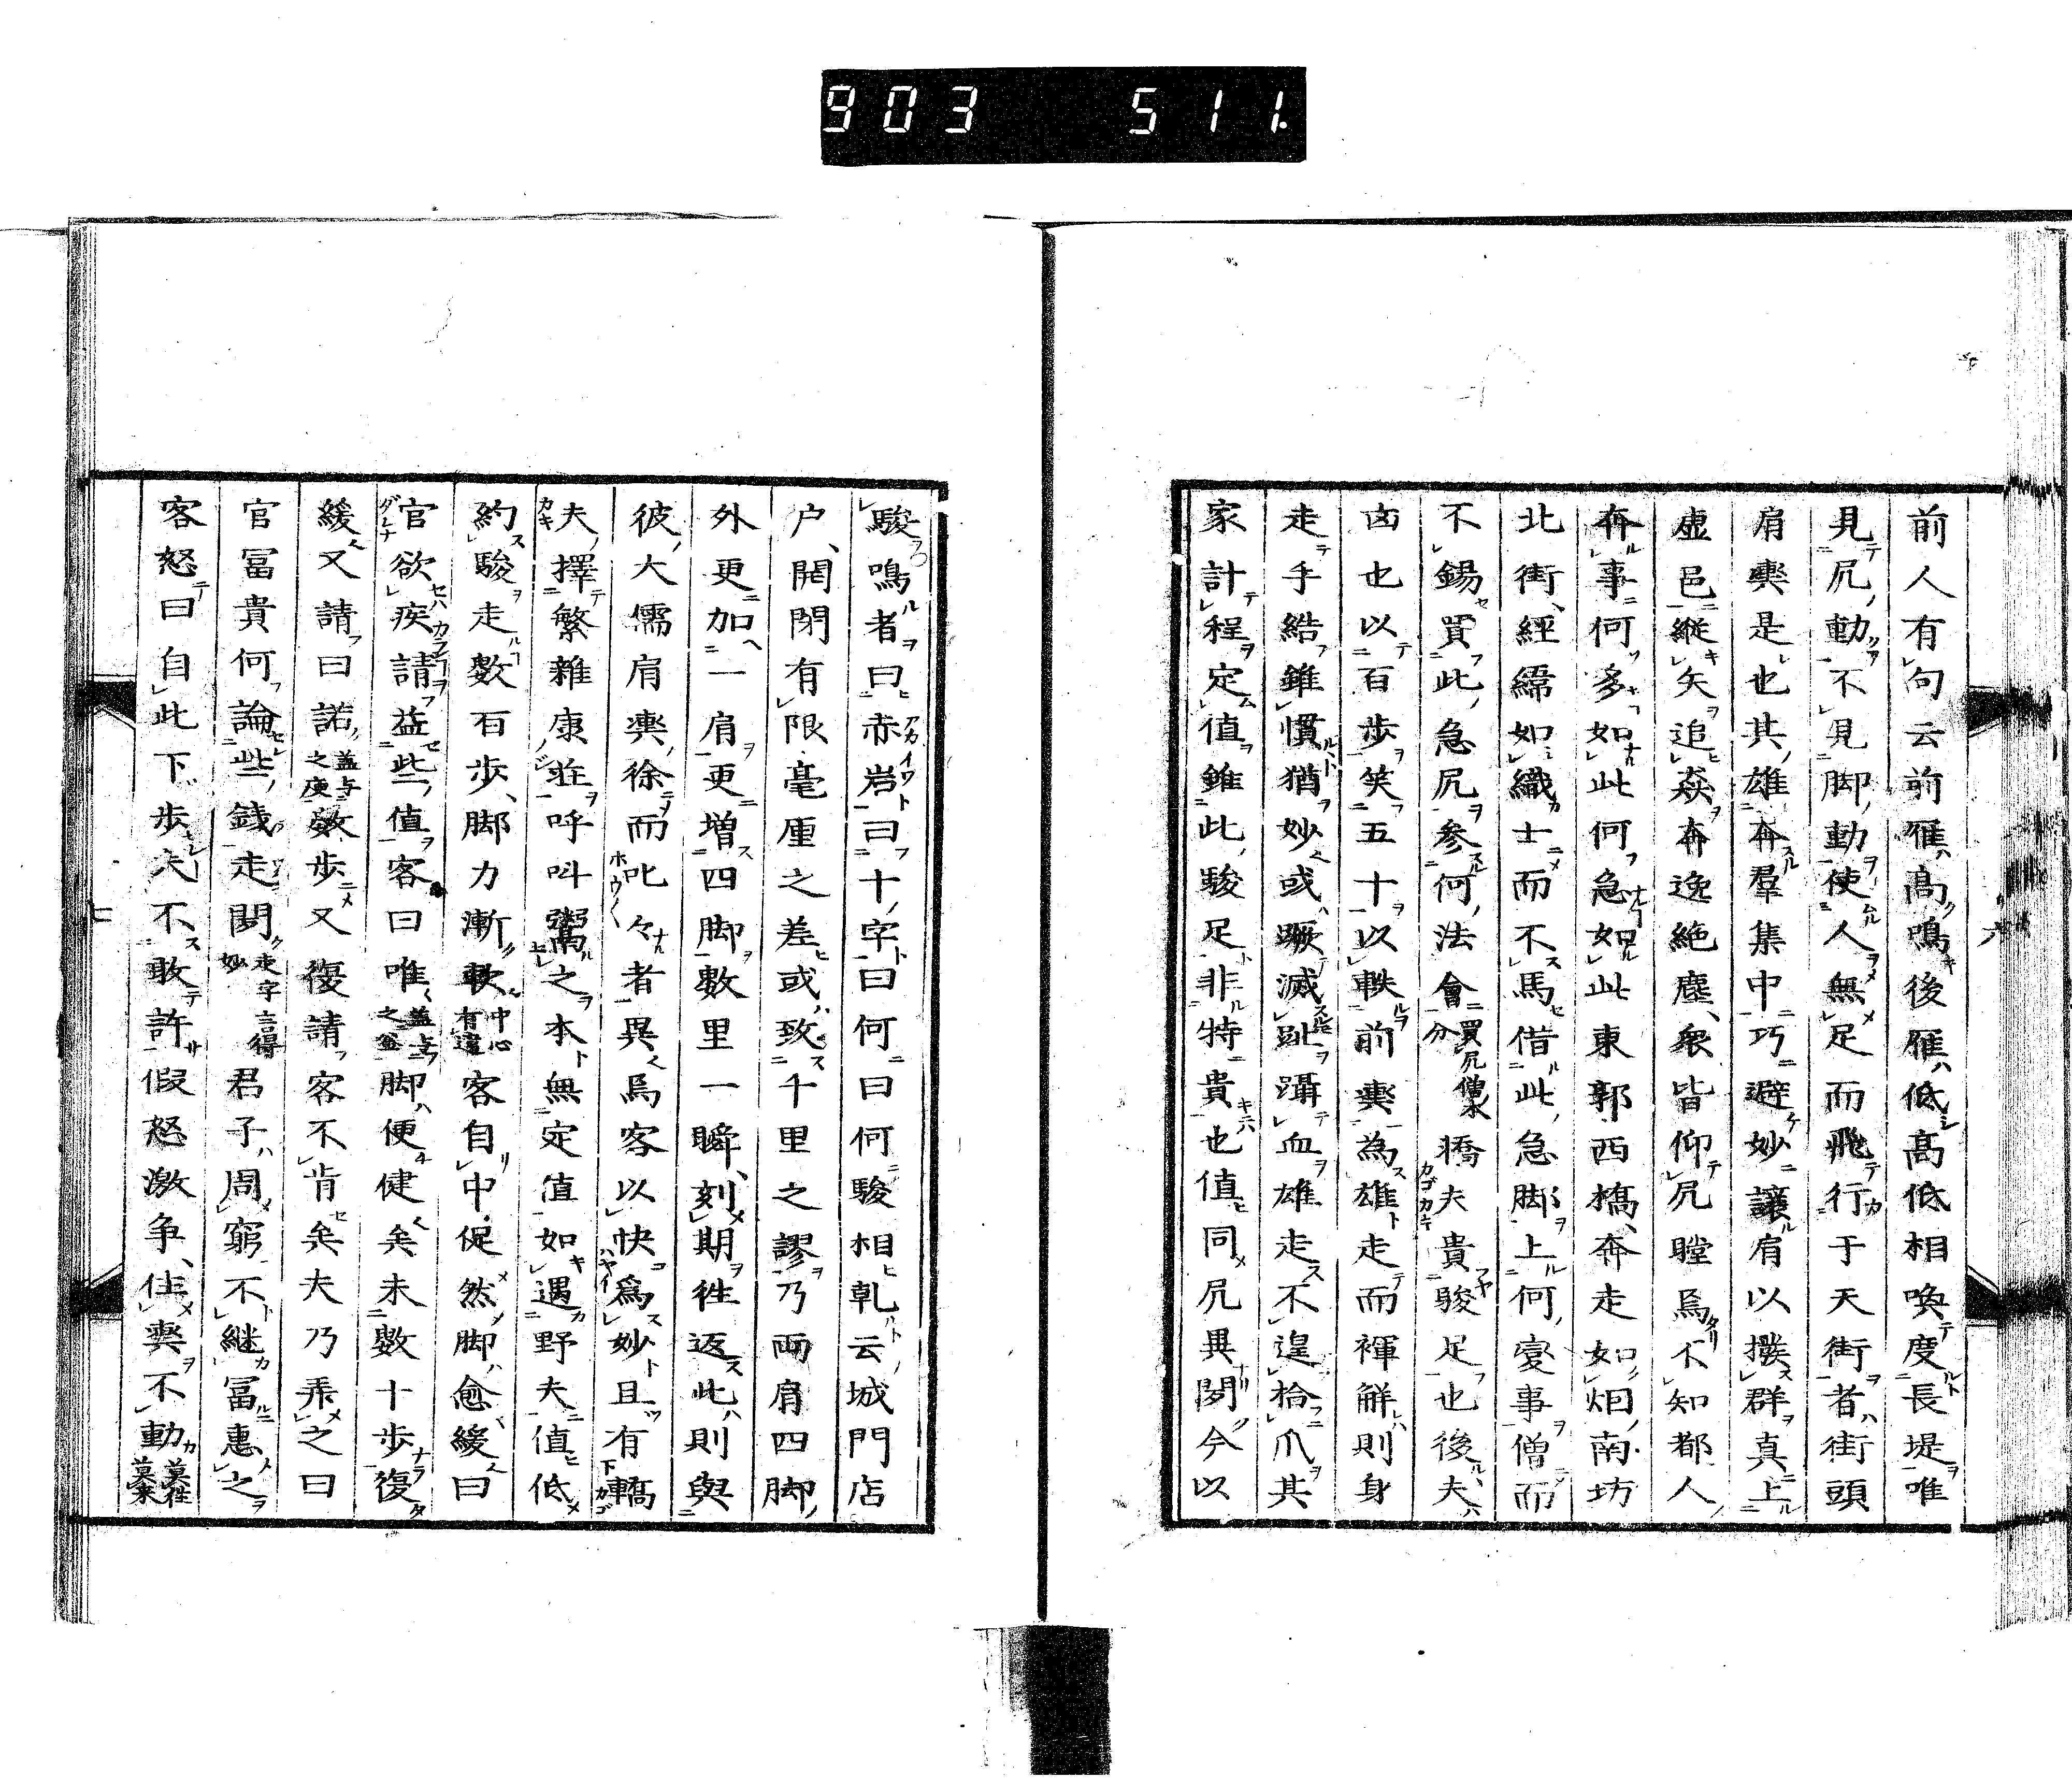 903 511.
前人有句云前雁高鳴後雁低高低相喚度長堤唯
見尻動不見脚動使人無足而飛行于天街者街頭
肩輿是也其雄奔羣集中巧避妙讓肩以撥群真上
虚邑縱矢追猋奔逸絶塵衆皆仰尻瞠焉不知都人
奔事何多如此何急如此東郭西橋奔走如烟南坊
北街經緯如織士而不馬借此急脚上何變事僧而
不錫買此急尻參何法會買尻僧水分轎夫貴駿足也後夫
卤也以百歩笑五十以軼前輿為雄走而褌解則身
走手結錐慣猶妙或蹶滅趾躡血雄走不遑拾爪其
家計程定值錐此駿足非特貴也值同尻異閿今以
駿鳴者曰赤岩曰十字曰何曰何駿相軋云城門店
户開閉有限毫厘之差或致千里之謬乃両肩四脚
外更加一肩更增四脚數里一瞬刻期徃返此則與
彼大儒肩輿徐而叱々者異焉客以快爲妙且有轎
夫擇繁雜康莊呼叫鬻之本無定值如遇野夫值低
約駿走數百歩脚力漸軟中心有違客自中促然脚愈緩曰
官欲疾請益些值客曰唯蓋与之釜脚便健矣未數十歩復
緩又請曰諾蓋与之庾數歩又復請客不肯矣夫乃乘之曰
官冨貴何論些錢走閿走字言得妙君子周窮不継冨惠之
客怒曰自此下歩夫不敢許假怒激争住輿不動莫徃莫來